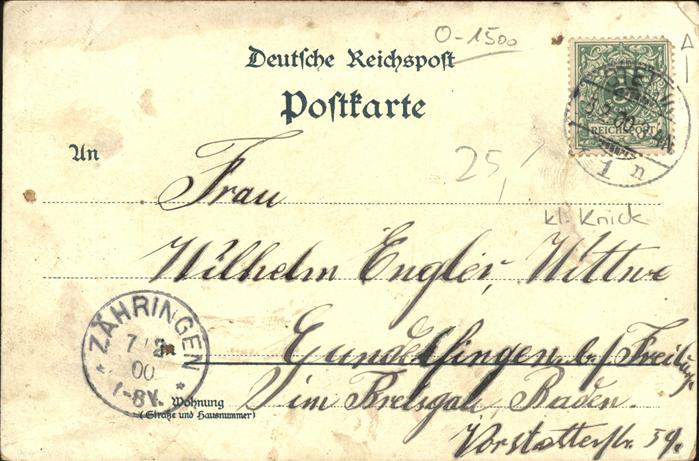 O-1500
Deutsche Reichspost
Postkarte
An
25,-
Frau
kl. Knick
Wilhelm Engler, Wittwe
Gundelfingen b/ Freiburg
im Breisgau Baden.
Vorstatterstr. 59.
ZÄHRINGEN
7
00
1-8V.
Wohnung
(Straße und Hausnummer)
REICHSPOST
1 n